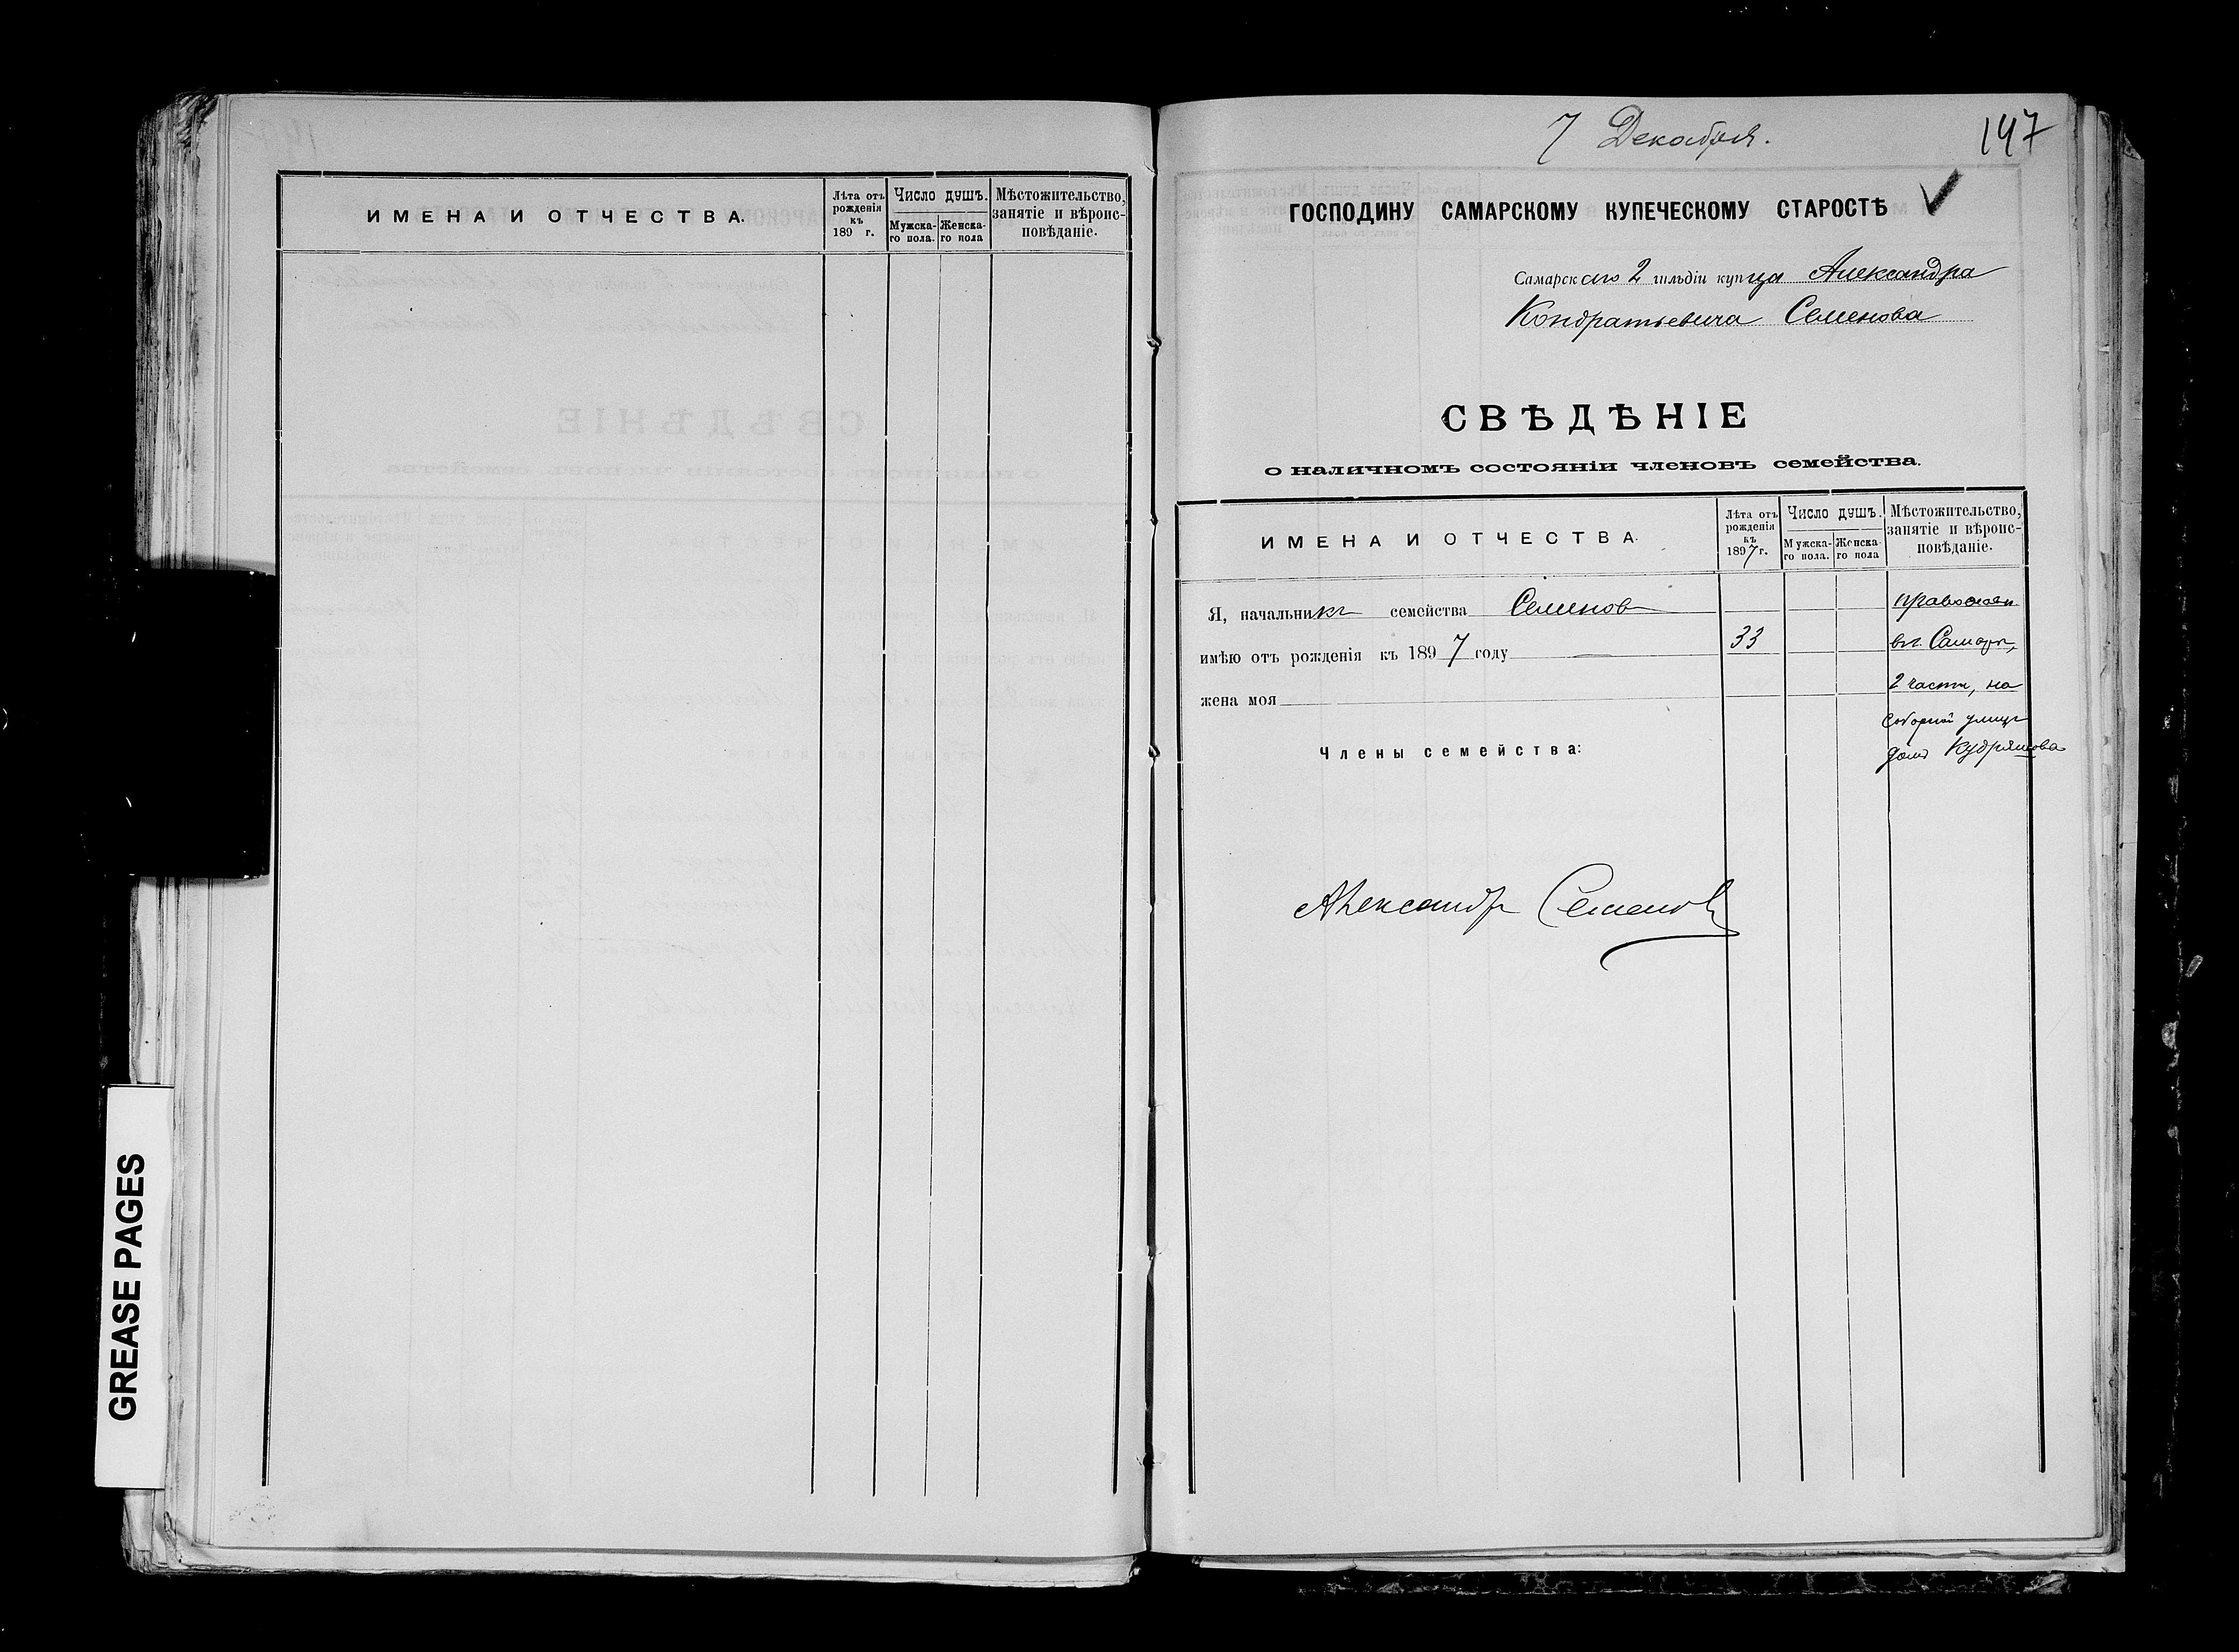 ИМЕНА И ОТЧЕСТВА.
Лѣта отъ рожденія къ 189 г.
Число душъ.
Мужска-го пола.
Женска-го пола
Мѣстожительство, занятіе и вѣроис-повѣданіе.
7 Декабря.
147
ГОСПОДИНУ САМАРСКОМУ КУПЕЧЕСКОМУ СТАРОСТѢ
Самарскаго 2 гильдіи купца Александра
Кондратьевича Семенова
СВѢДѢНІЕ
о наличномъ состояніи членовъ семейства.
ИМЕНА И ОТЧЕСТВА.
Лѣта отъ рожденія къ 1897 г.
Число душъ.
Мужска-го пола.
Женска-го пола
Мѣстожительство, занятіе и вѣроис-повѣданіе.
Я, начальникъ семейства Семеновъ
православ.
имѣю отъ рожденія къ 1897 году 33
въ г. Самарѣ,
жена моя
2 части, на
Соборной улицѣ
Члены семейства:
домъ Кудряшова
Александръ Семеновъ
GREASE PAGES